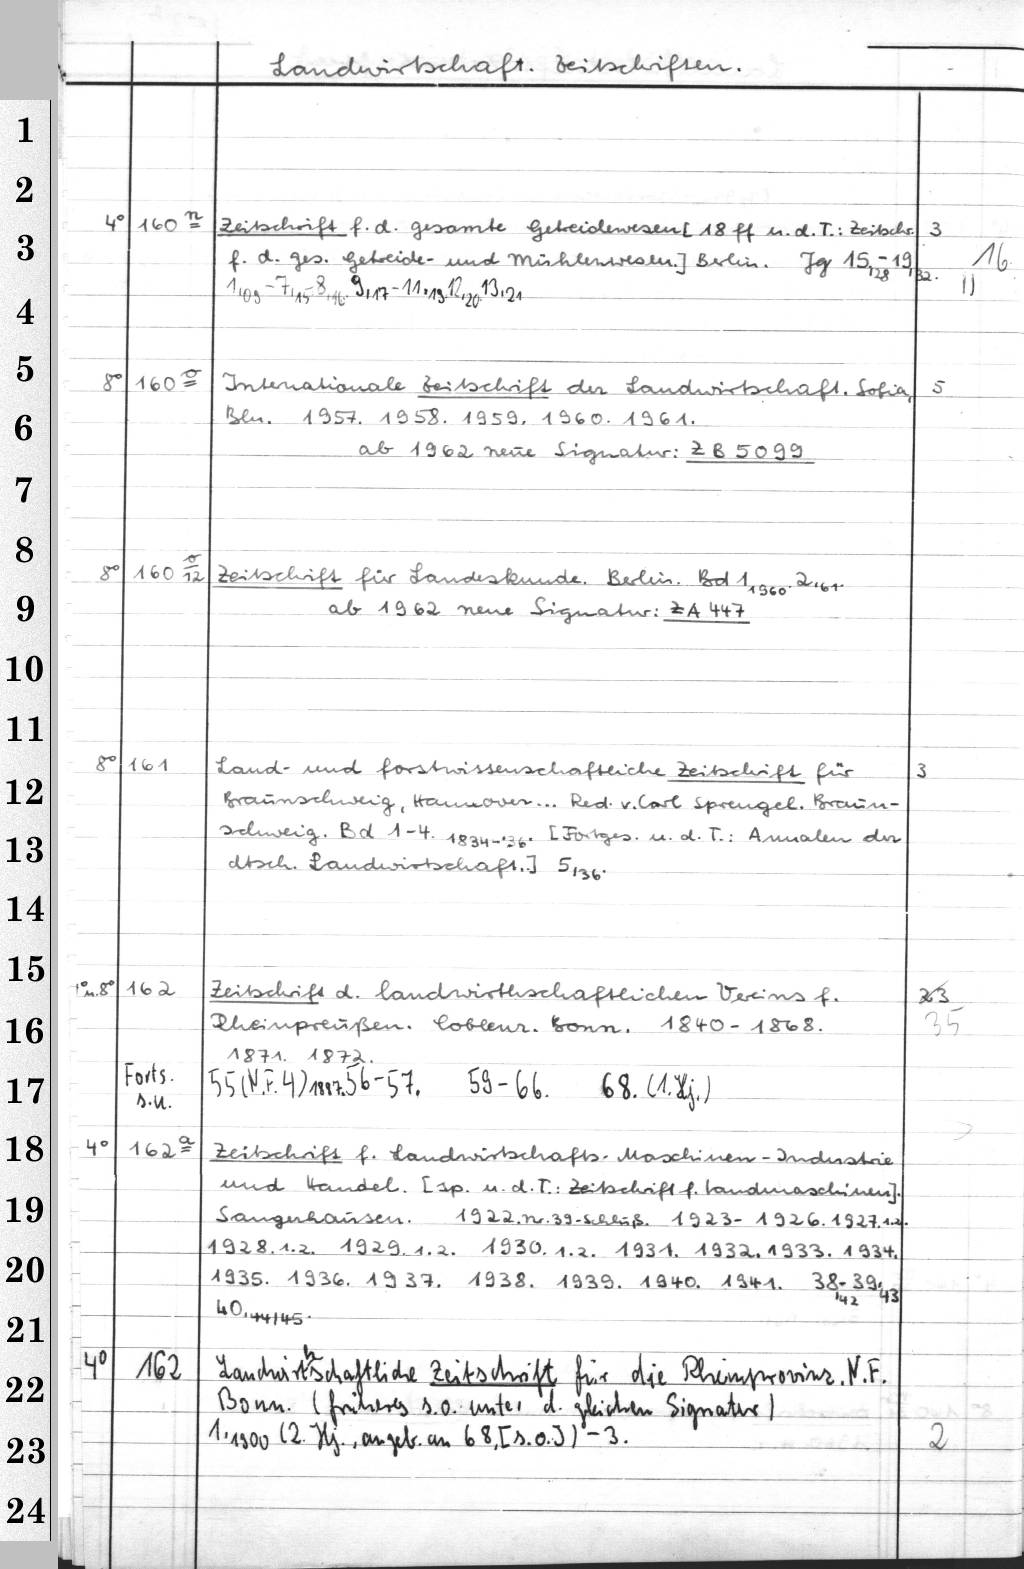 Landwirtschaft. Zeitschriften.
1
2
4° 160 n Zeitschrift f. d. gesamte Getreidewesen [18 ff u. d. T.: Zeitschr. 3
3 f. d. ges. Getreide- und Mühlenwesen.] Berlin. Jg 15,28-19,32. 16
1,09-7,15. 8,16. 9,17-11,19. 12,20. 13,21 11
4
5 8° 160 o Internationale Zeitschrift der Landwirtschaft. Sofia, 5
6 Bln. 1957. 1958. 1959. 1960. 1961.
ab 1962 neue Signatur: ZB 5099
7
8
8° 160 o/12 Zeitschrift für Landeskunde. Berlin. Bd 1,1960. 2,61.
9 ab 1962 neue Signatur: ZA 447
10
11
8° 161 Land- und forstwissenschaftliche Zeitschrift für 3
12 Braunschweig, Hannover... Red. v. Carl Sprengel. Braun-
13 schweig. Bd 1-4. 1834-'36. [Fortges. u. d. T.: Annalen der
dtsch. Landwirtschaft.] 5,36.
14
15
u. 8° 162 Zeitschrift d. landwirthschaftlichen Vereins f. 23
16 Rheinpreußen. Coblenz. Bonn. 1840-1868. 35
1871. 1872.
17 Forts. 55 (N.F. 4) 1887. 56-57. 59-66. 68. (1. Hj.)
s.u.
18 4° 162 a Zeitschrift f. Landwirtschafts-Maschinen-Industrie
und Handel. [sp. u. d. T.: Zeitschrift f. Landmaschinen].
19 Sangerhausen. 1922, nr. 39-Schluß. 1923-1926. 1927.1.2.
1928.1.2. 1929.1.2. 1930.1.2. 1931. 1932. 1933. 1934.
20 1935. 1936. 1937. 1938. 1939. 1940. 1941. 38,42-39,43
40,44/45.
21
4° 162 Landwirthschaftliche Zeitschrift für die Rheinprovinz. N.F.
22 Bonn. (früheres s.o. unter d. gleichen Signatur)
23 1,1900 (2. Hj., angeb. an 68, [s.o.]) -3. 2
24